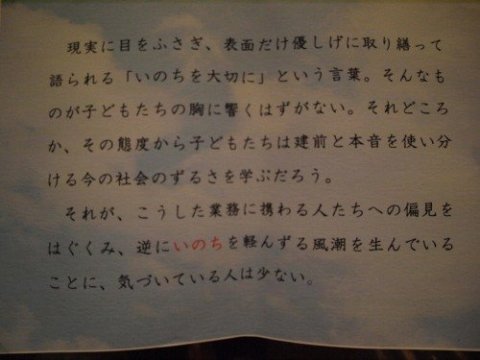 現実に目をふさぎ、表面だけ優しげに取り繕って
語られる「いのちを大切に」という言葉。そんなも
のが子どもたちの胸に響くはずがない。それどころ
か、その態度から子どもたちは建前と本音を使い分
ける今の社会のずるさを学ぶだろう。
それが、こうした業務に携わる人たちへの偏見を
はぐくみ、逆にいのちを軽んずる風潮を生んでいる
ことに、気づいている人は少ない。